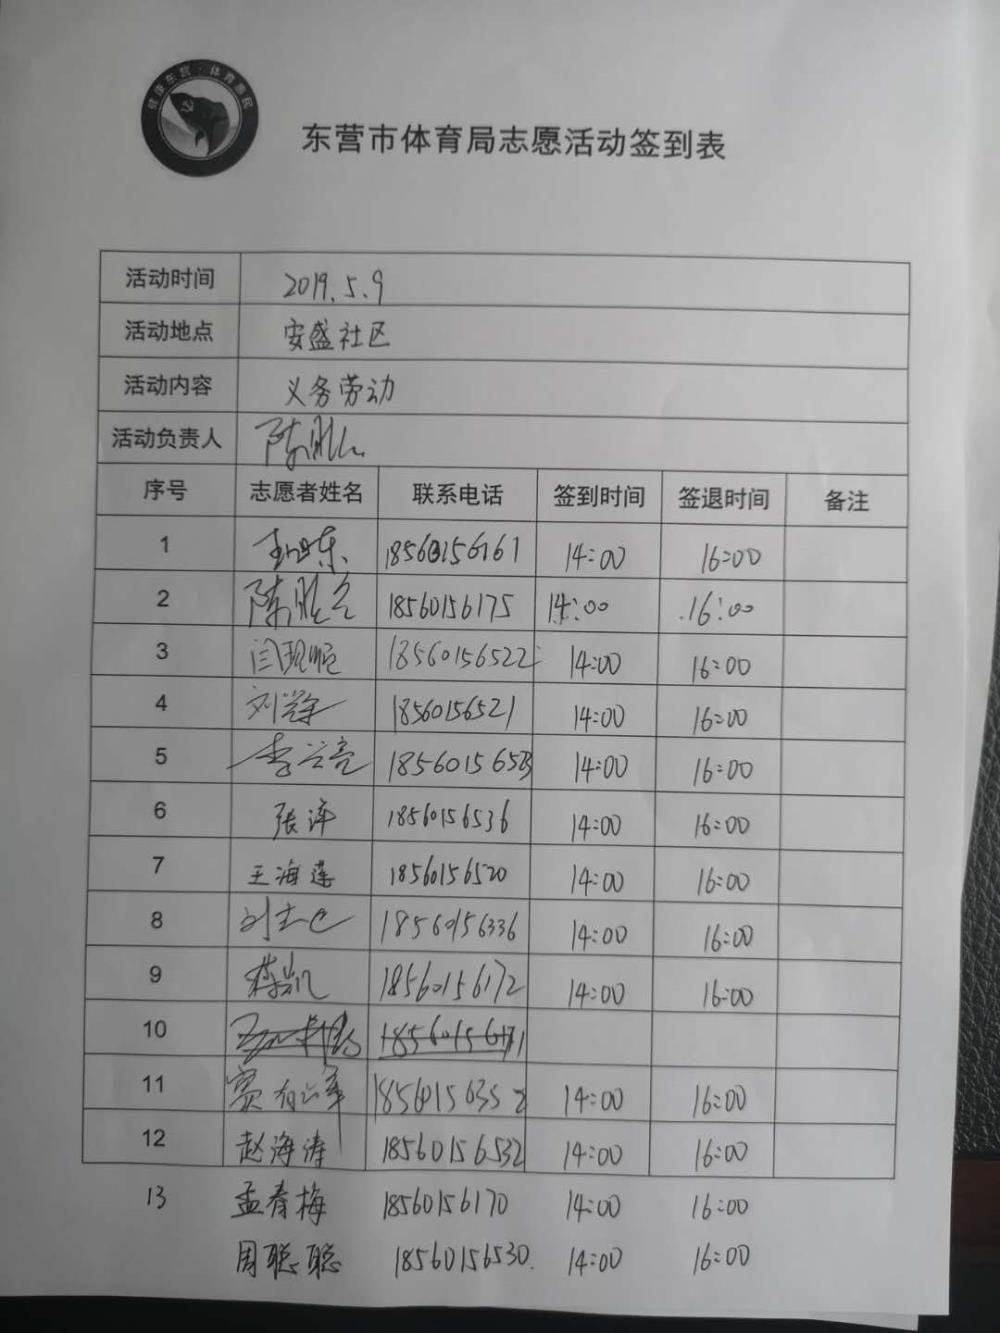 健康东营·体育惠民
东营市体育局志愿活动签到表
活动时间 2019.5.9
活动地点 安盛社区
活动内容 义务劳动
活动负责人 陈胜
序号 志愿者姓名 联系电话 签到时间 签退时间 备注
1 18560156161 14:00 16:00
2 陈胜 18560156175 14:00 16:00
3 闫现顺 18560156522 14:00 16:00
4 刘 18560156521 14:00 16:00
5 李兰亮 14:00 16:00
6 张萍 18560156536 14:00 16:00
7 王海莲 18560156520 14:00 16:00
8 刘志 18560156336 14:00 16:00
9 蔡凯 18560156172 14:00 16:00
10
11 18560156352 14:00 16:00
12 赵海涛 18560156532 14:00 16:00
13 孟春梅 18560156170 14:00 16:00
周聪聪 18560156530. 14:00 16:00